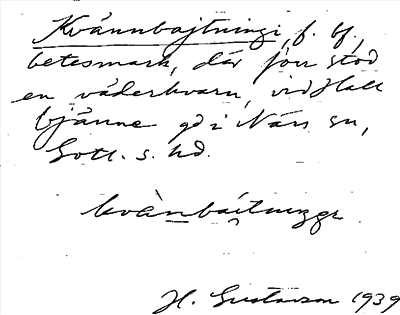 Kvännbajtningi, f. bf,
betesmark, där förr stod
en väderkvarn, vid Hall
bjänne gd i När sn,
Gotl. s. hd.
kvànbáitnıŋgı
H. Gustavson 1939